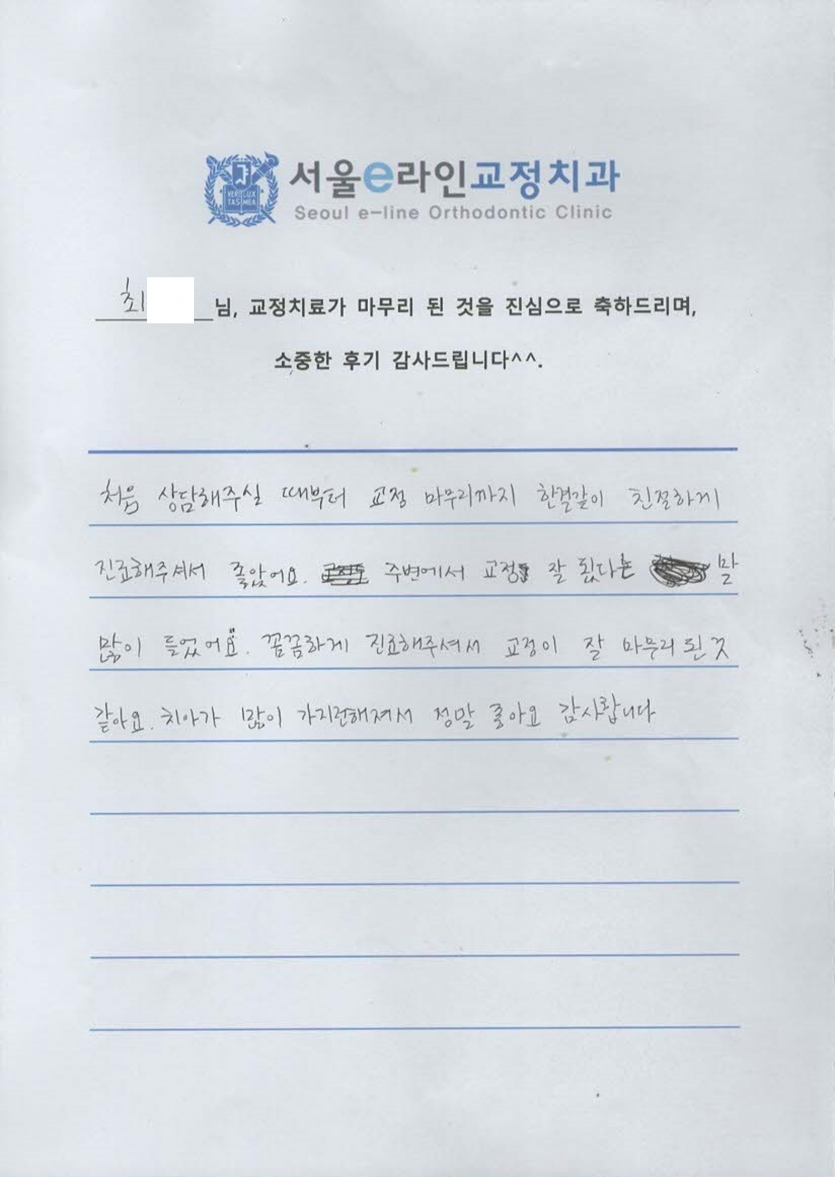 VERI LUX
TAS MEA
서울e라인교정치과
Seoul e-line Orthodontic Clinic
최 님, 교정치료가 마무리 된 것을 진심으로 축하드리며,
소중한 후기 감사드립니다^^.
처음 상담해주실 때부터 교정 마무리까지 한결같이 친절하게
진료해주셔서 좋았어요. 주변에서 교정 잘 됬다는 말
많이 들었어요. 꼼꼼하게 진료해주셔서 교정이 잘 마무리 된 것
같아요. 치아가 많이 가지런해져서 정말 좋아요 감사합니다